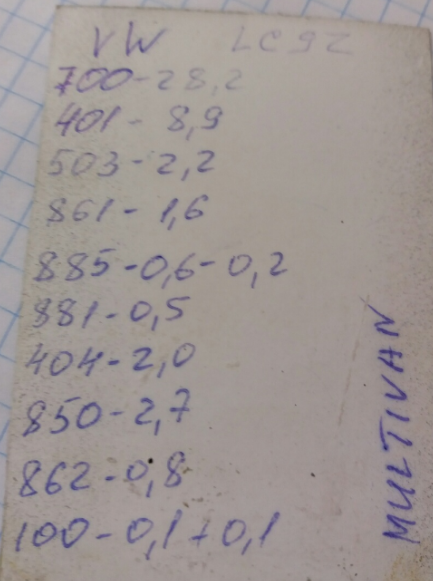 VW LC9Z
700-28,2
401-8,9
503-2,2
861-1,6
885-0,6-0,2
881-0,5
404-2,0
850-2,7
862-0,8
100-0,1+0,1
MULTIVAN